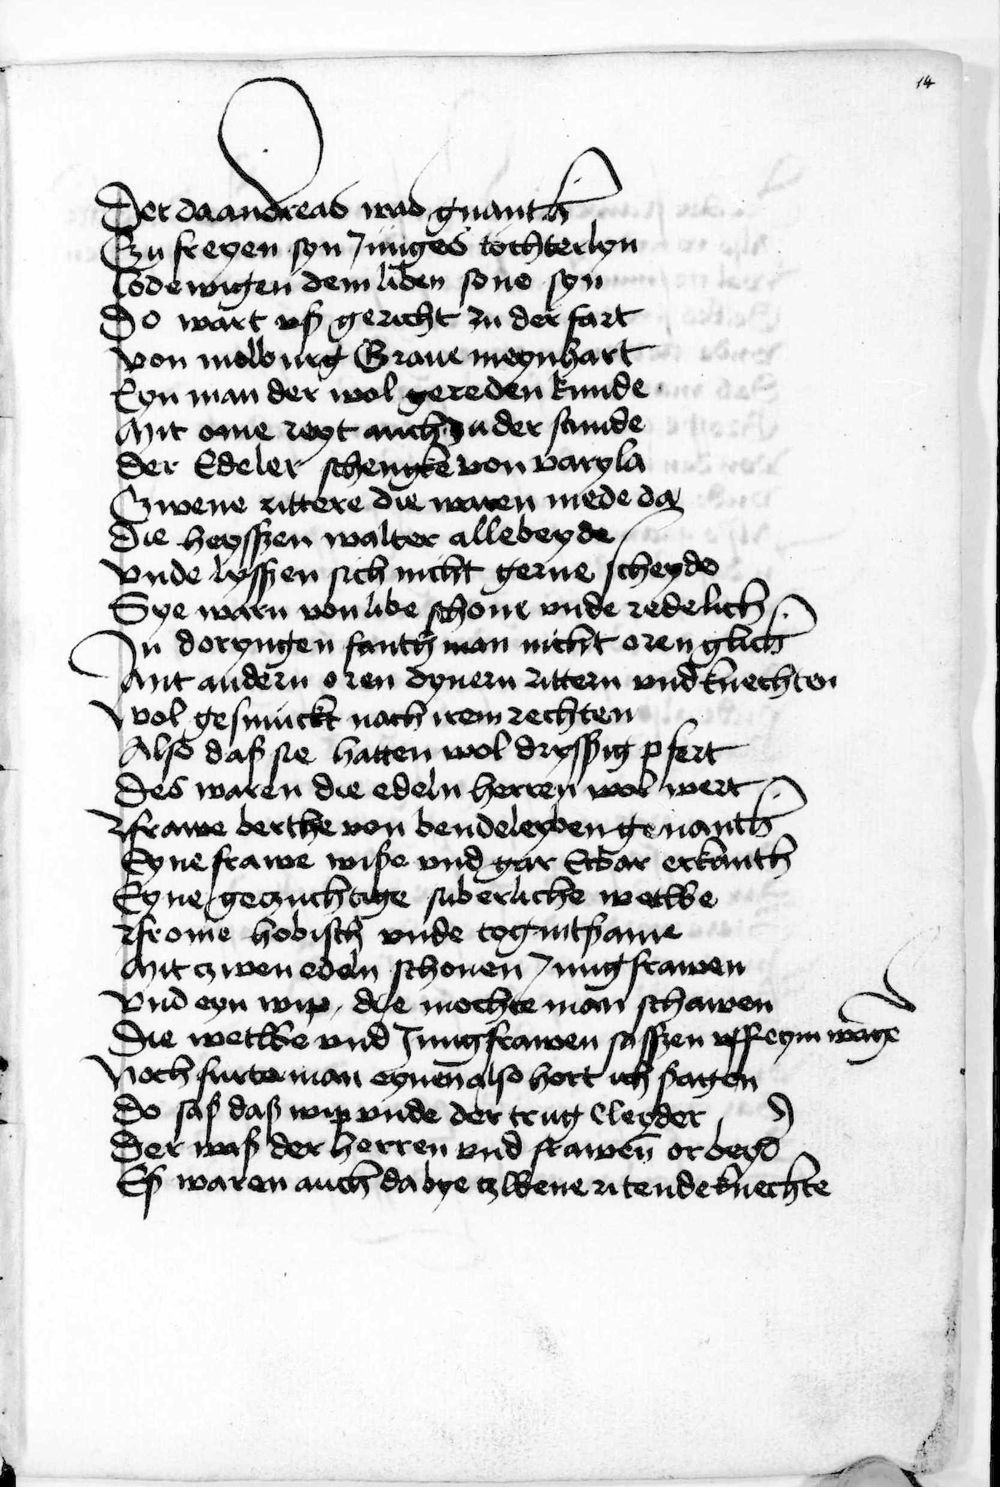 14
Der da andreas was gnanth
Czu freyen syn Junges tochterlyn
lodewigen dem liben sone syn
Do wart uß gericht zu der fart
von molburg Graue meynhart
Eyn man der wol gereden kunde
Mit ome reyt auch zu der stunde
Der Edeler schengke von varyla
Czwene rittere die waren mede da
Die heysszen walter allebeyde
vnde lysszen sich nicht gerne scheyde
Sye warn von libe schone vnde redelich
In doryngen fanth man nicht oren glich
Mit andern oren dynern rittern vnd knechten
wol gesmuckt nach irem rechten
Also daß sie hatten wol dryssig pfert
Des waren die edeln herren wol wert
frawe berthe von bendeleyben genanth
Eyne frawe wiße vnd gar Erbar erkanth
Eyne geczuchtige suberliche wetbe
frome hobisch vnde togintsame
Mit czwen edeln schonen Jungfrawen
vnd eyn wip die mochte man schawen
Die wetbe vnd Jungfrawen sasszen uff eym wage
Noch furte man eynen also hort ich sagen
Do saß daß wip vnde der trug Cleyder
Der waß der herren vnd frawen or beyd
Eß waren auch da bye czwene ritende knechte